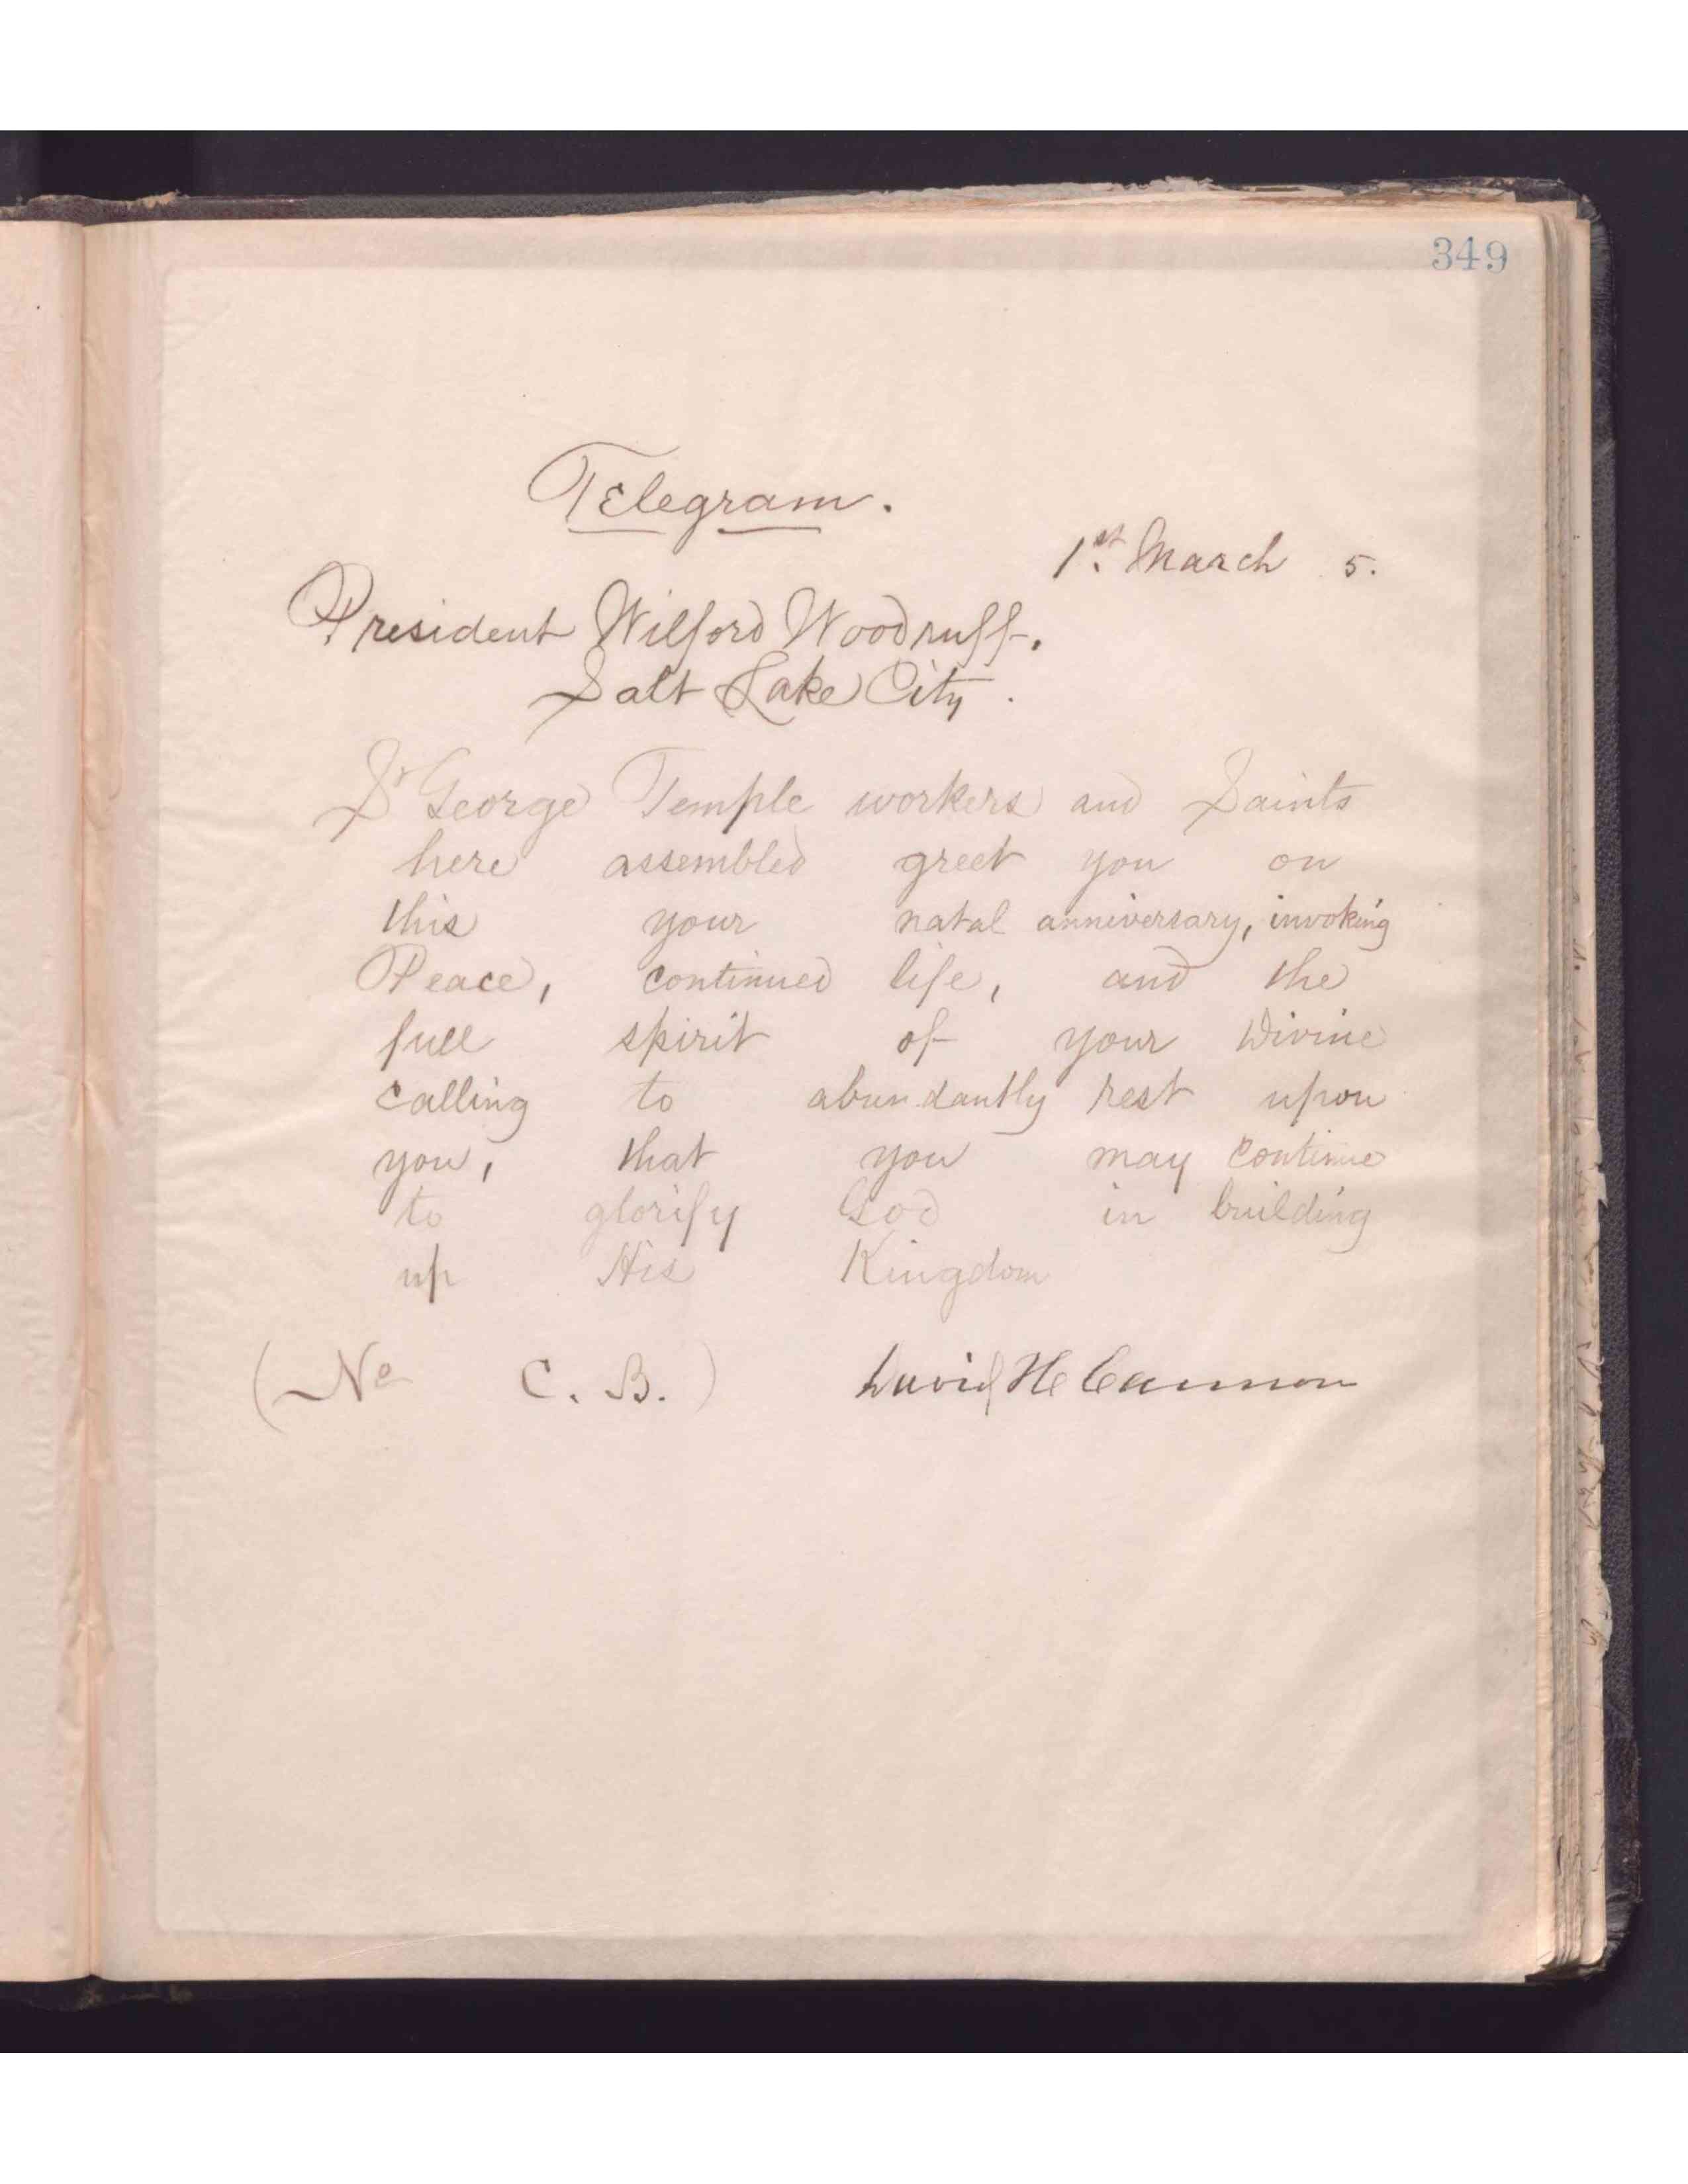 349
Telegram.
1st March 5.
President Wilford Woodruff.
Salt Lake City.
St George Temple workers and Saints
here assembled greet you on
this your natal anniversary, invoking
Peace, continued life, and the
full spirit of your Divine
calling to abundantly rest upon
you, that you may continue
to glorify God in building
up His Kingdom
( C. B.) David H Cannon